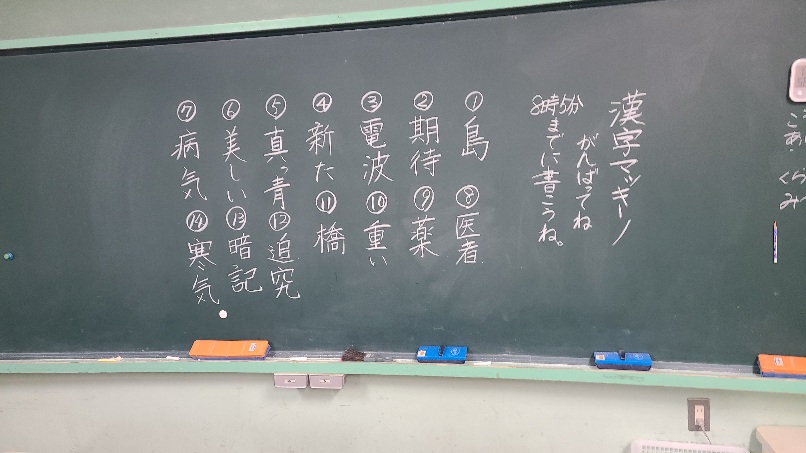 漢字マッキーノ
がんばってね
8時5分
までに書こうね。
①島
②期待
③電波
④新た
⑤真っ青
⑥美しい
⑦病気
⑧医者
⑨薬
⑩重い
⑪橋
⑫追究
⑬暗記
⑭寒気